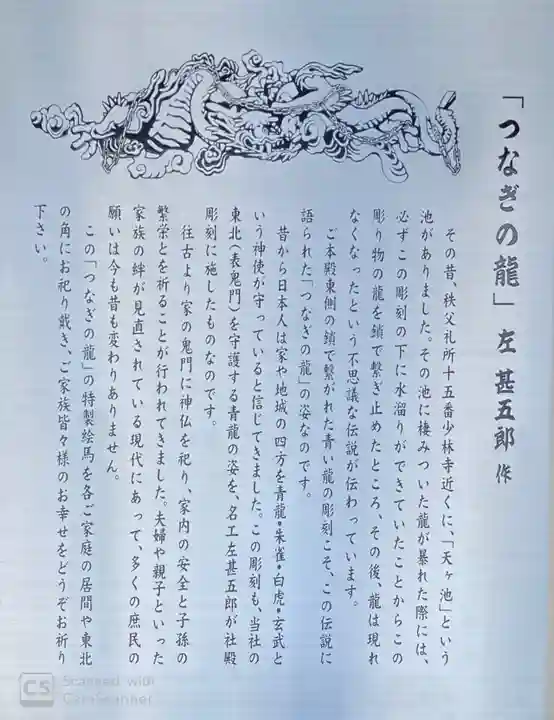 「つなぎの龍」 左 甚五郎 作
その昔、秩父礼所十五番少林寺近くに、「天ヶ池」という
池がありました。その池に棲みついた龍が暴れた際には、
必ずこの彫刻の下に水溜りができていたことからこの
彫り物の龍を鎖で繋ぎ止めたところ、その後、龍は現れ
なくなったという不思議な伝説が伝わっています。
ご本殿東側の鎖で繋がれた青い龍の彫刻こそ、この伝説に
語られた「つなぎの龍」の姿なのです。
昔から日本人は家や地域の四方を青龍・朱雀・白虎・玄武と
いう神使が守っていると信じてきました。この彫刻も、当社の
東北(表鬼門)を守護する青龍の姿を、名工左甚五郎が社殿
彫刻に施したものなのです。
往古より家の鬼門に神仏を祀り、家内の安全と子孫の
繁栄とを祈ることが行われてきました。夫婦や親子といった
家族の絆が見直されている現代にあって、多くの庶民の
願いは今も昔も変わりありません。
この「つなぎの龍」の特製絵馬を各ご家庭の居間や東北
の角にお祀り戴き、ご家族皆々様のお幸せをどうぞお祈り
下さい。
CS Scanned with
CamScanner